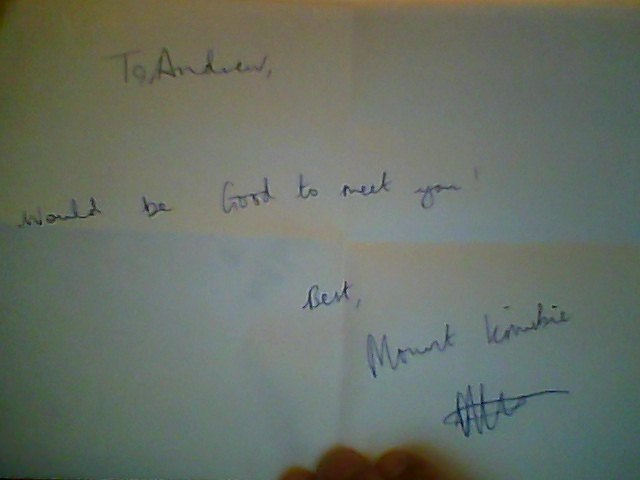 To, Andrew,
Would be Good to meet you!
Best,
Mount Kimbie